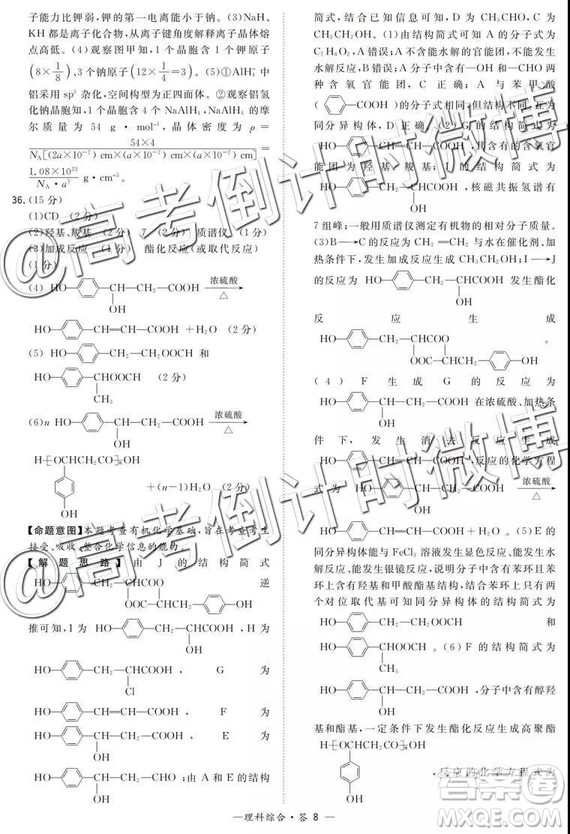 子能力比钾弱,钾的第一电离能小于钠。(3)NaH、
KH都是离子化合物,从离子键角度解释离子晶体熔
点高低。(4)观察图甲知,1个晶胞含1个钾原子
(8×1/8),3个钠原子(12×1/4=3)。(5)①AlH₄⁻中
铝采用sp³杂化,空间构型为正四面体。②观察铝氢
化钠晶胞知,1个晶胞含4个NaAlH₄,NaAlH₄的摩
尔质量为54 g·mol⁻¹,晶体密度为ρ=
36.(15分)
(1)CD (2分)
(2)羟基、羧基 (2分) 7 (2分) 质谱仪 (1分)
(3)加成反应 (1分) 酯化反应(或取代反应) (1分)
(4)HO— —CH—CH₂—COOH 浓硫酸 △
OH
HO— —CH=CH—COOH+H₂O (2分)
(5) HO— —CH₂—CH₂OOCH 和
HO— —CHOOCH (2分)
CH₃
(6)n HO— —CH—CH₂—COOH 浓硫酸 △
OH
H[OCHCH₂CO]ₙOH
+(n−1)H₂O (2分)
OH
【命题意图】本题考查有机化学基础,旨在考查考生
接受、吸收、整合化学信息的能力。
【解题思路】由J的结构简式
逆
推可知,I为 HO— —CH₂—CHCOOH,H为
OH
HO— —CH₂—CHCOOH , G 为
Cl
HO— —CH=CH—COOH , F 为
HO— —CH—CH₂—COOH , E 为
OH
HO— —CH—CH₂—CHO ;由A和E的结构
OH
简式,结合已知可得,D为CH₃CHO,C为
CH₃CH₂OH。(1)由结构简式可知A的分子式为
C₇H₆O₂,A错误;A不含能水解的官能团,不能发生
水解反应,B错误;A分子中含有—OH和—CHO两
种含氧官能团,C正确;A与苯甲酸
( —COOH)的分子式相同,但结构不同,互为
同分异构体,D正确。(2)G的结构简式为
HO— —CH=CH—COOH,其含有的含氧官
能团为羟基、羧基;I的结构简式为
HO— —CH₂—CHCOOH,核磁共振氢谱有
OH
7组峰;一般用质谱仪测定有机物的相对分子质量。
(3)B→C的反应为CH₂=CH₂与水在催化剂、加
热条件下,发生加成反应生成CH₃CH₂OH;I→J
的反应为 HO— —CH₂—CHCOOH 发生酯化
OH
反应生成
(4)F生成G的反应为
HO— —CH—CH₂—COOH在浓硫酸、加热条
OH
件下,发生消去反应生成
HO— —CH=CH—COOH,反应的化学方程
式为 HO— —CH—CH₂—COOH 浓硫酸 △
OH
HO— —CH=CH—COOH+H₂O。(5)E的
同分异构体能与FeCl₃溶液发生显色反应、能发生水
解反应、能发生银镜反应,说明分子中含有苯环且苯
环上含有羟基和甲酸酯基结构,结合苯环上只有两
个对位取代基可知同分异构体的结构简式为
HO— —CH₂—CH₂OOCH 和
HO— —CHOOCH 。(6)F的结构简式为
CH₃
HO— —CH—CH₂—COOH,分子中含有醇羟
OH
基和酯基,一定条件下发生酯化反应生成高聚酯
H[OCHCH₂CO]ₙOH
,反应的化学方程式为
OH
—理科综合·答 8—
@高考倒计时微博
@高考倒计时微博